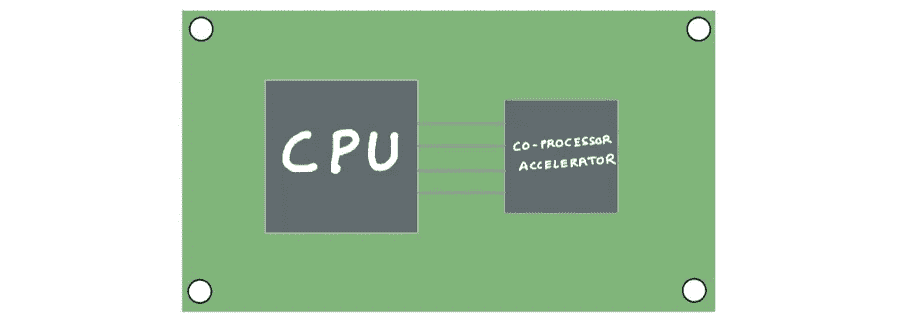 CPU
CO-PROCESSOR
ACCELERATOR